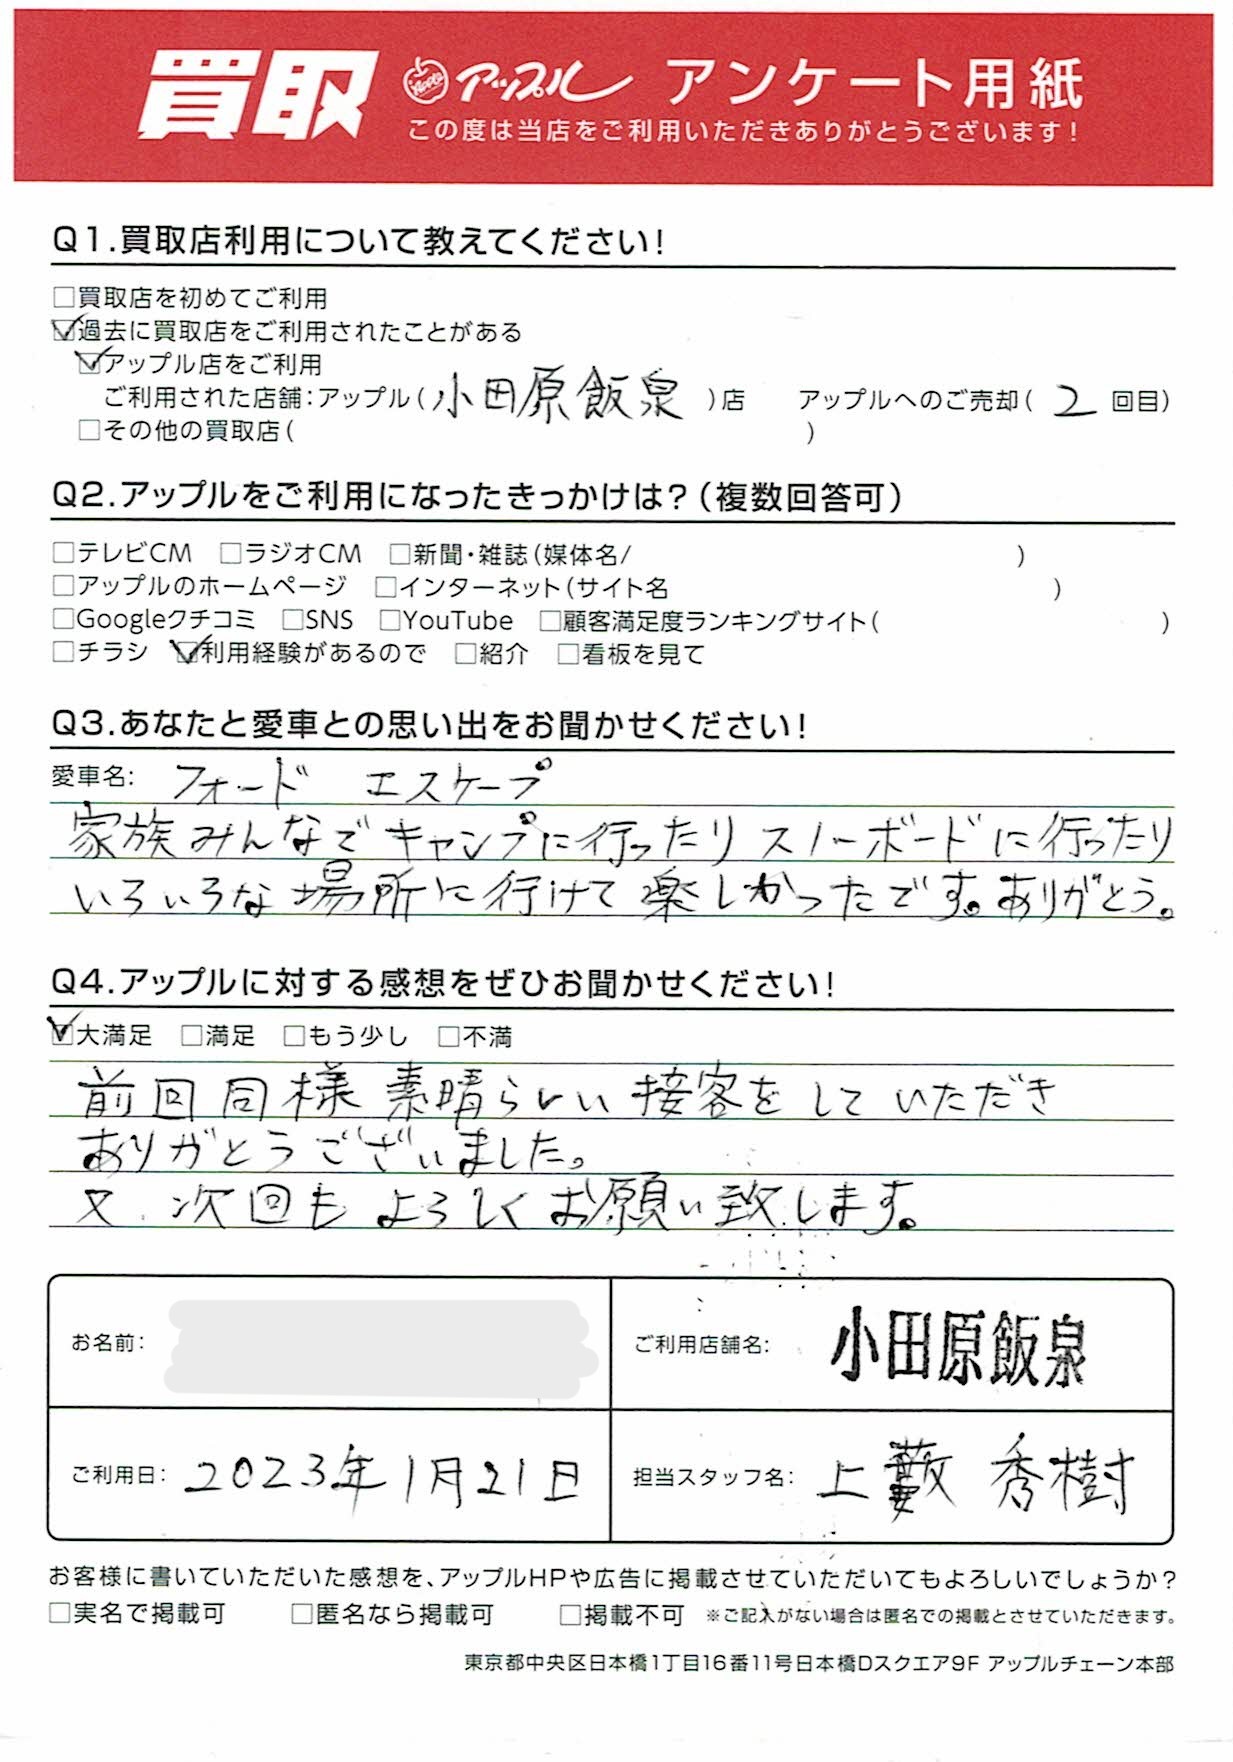 買取 Apple アップル アンケート用紙
この度は当店をご利用いただきありがとうございます!
Q1.買取店利用について教えてください!
□買取店を初めてご利用
☑過去に買取店をご利用されたことがある
☑アップル店をご利用
ご利用された店舗:アップル(小田原飯泉)店 アップルへのご売却(2回目)
□その他の買取店( )
Q2.アップルをご利用になったきっかけは?(複数回答可)
□テレビCM □ラジオCM □新聞・雑誌(媒体名/ )
□アップルのホームページ □インターネット(サイト名 )
□Googleクチコミ □SNS □YouTube □顧客満足度ランキングサイト( )
□チラシ ☑利用経験があるので □紹介 □看板を見て
Q3.あなたと愛車との思い出をお聞かせください!
愛車名: フォード エスケープ
家族みんなでキャンプに行ったりスノーボードに行ったり
いろいろな場所に行けて楽しかったです。ありがとう。
Q4.アップルに対する感想をぜひお聞かせください!
☑大満足 □満足 □もう少し □不満
前回同様素晴らしい接客をしていただき
ありがとうございました。
又、次回もよろしくお願い致します。
お名前:
ご利用店舗名: 小田原飯泉
ご利用日: 2023年1月21日
担当スタッフ名: 上藪 秀樹
お客様に書いていただいた感想を、アップルHPや広告に掲載させていただいてもよろしいでしょうか?
□実名で掲載可 □匿名なら掲載可 □掲載不可 ※ご記入がない場合は匿名での掲載とさせていただきます。
東京都中央区日本橋1丁目16番11号日本橋Dスクエア9F アップルチェーン本部